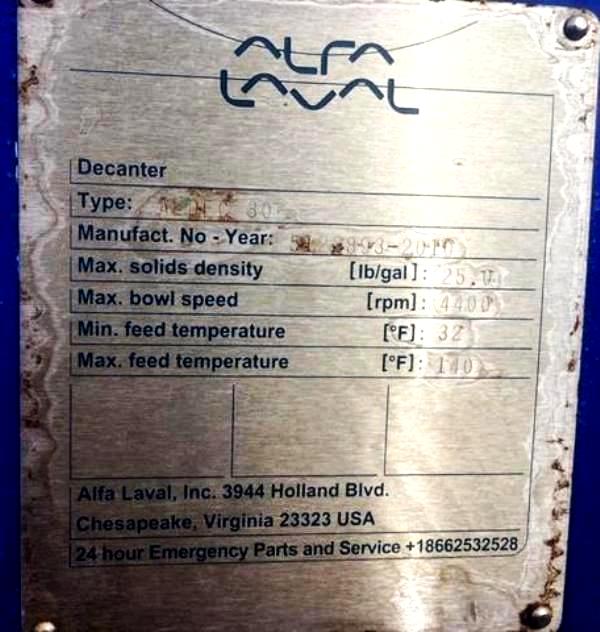 ALFA
LAVAL
Decanter
Type:
Manufact. No - Year:
Max. solids density [lb/gal]: 25.0
Max. bowl speed [rpm]: 4400
Min. feed temperature [°F]: 32
Max. feed temperature [°F]: 140
Alfa Laval, Inc. 3944 Holland Blvd.
Chesapeake, Virginia 23323 USA
24 hour Emergency Parts and Service +18662532528